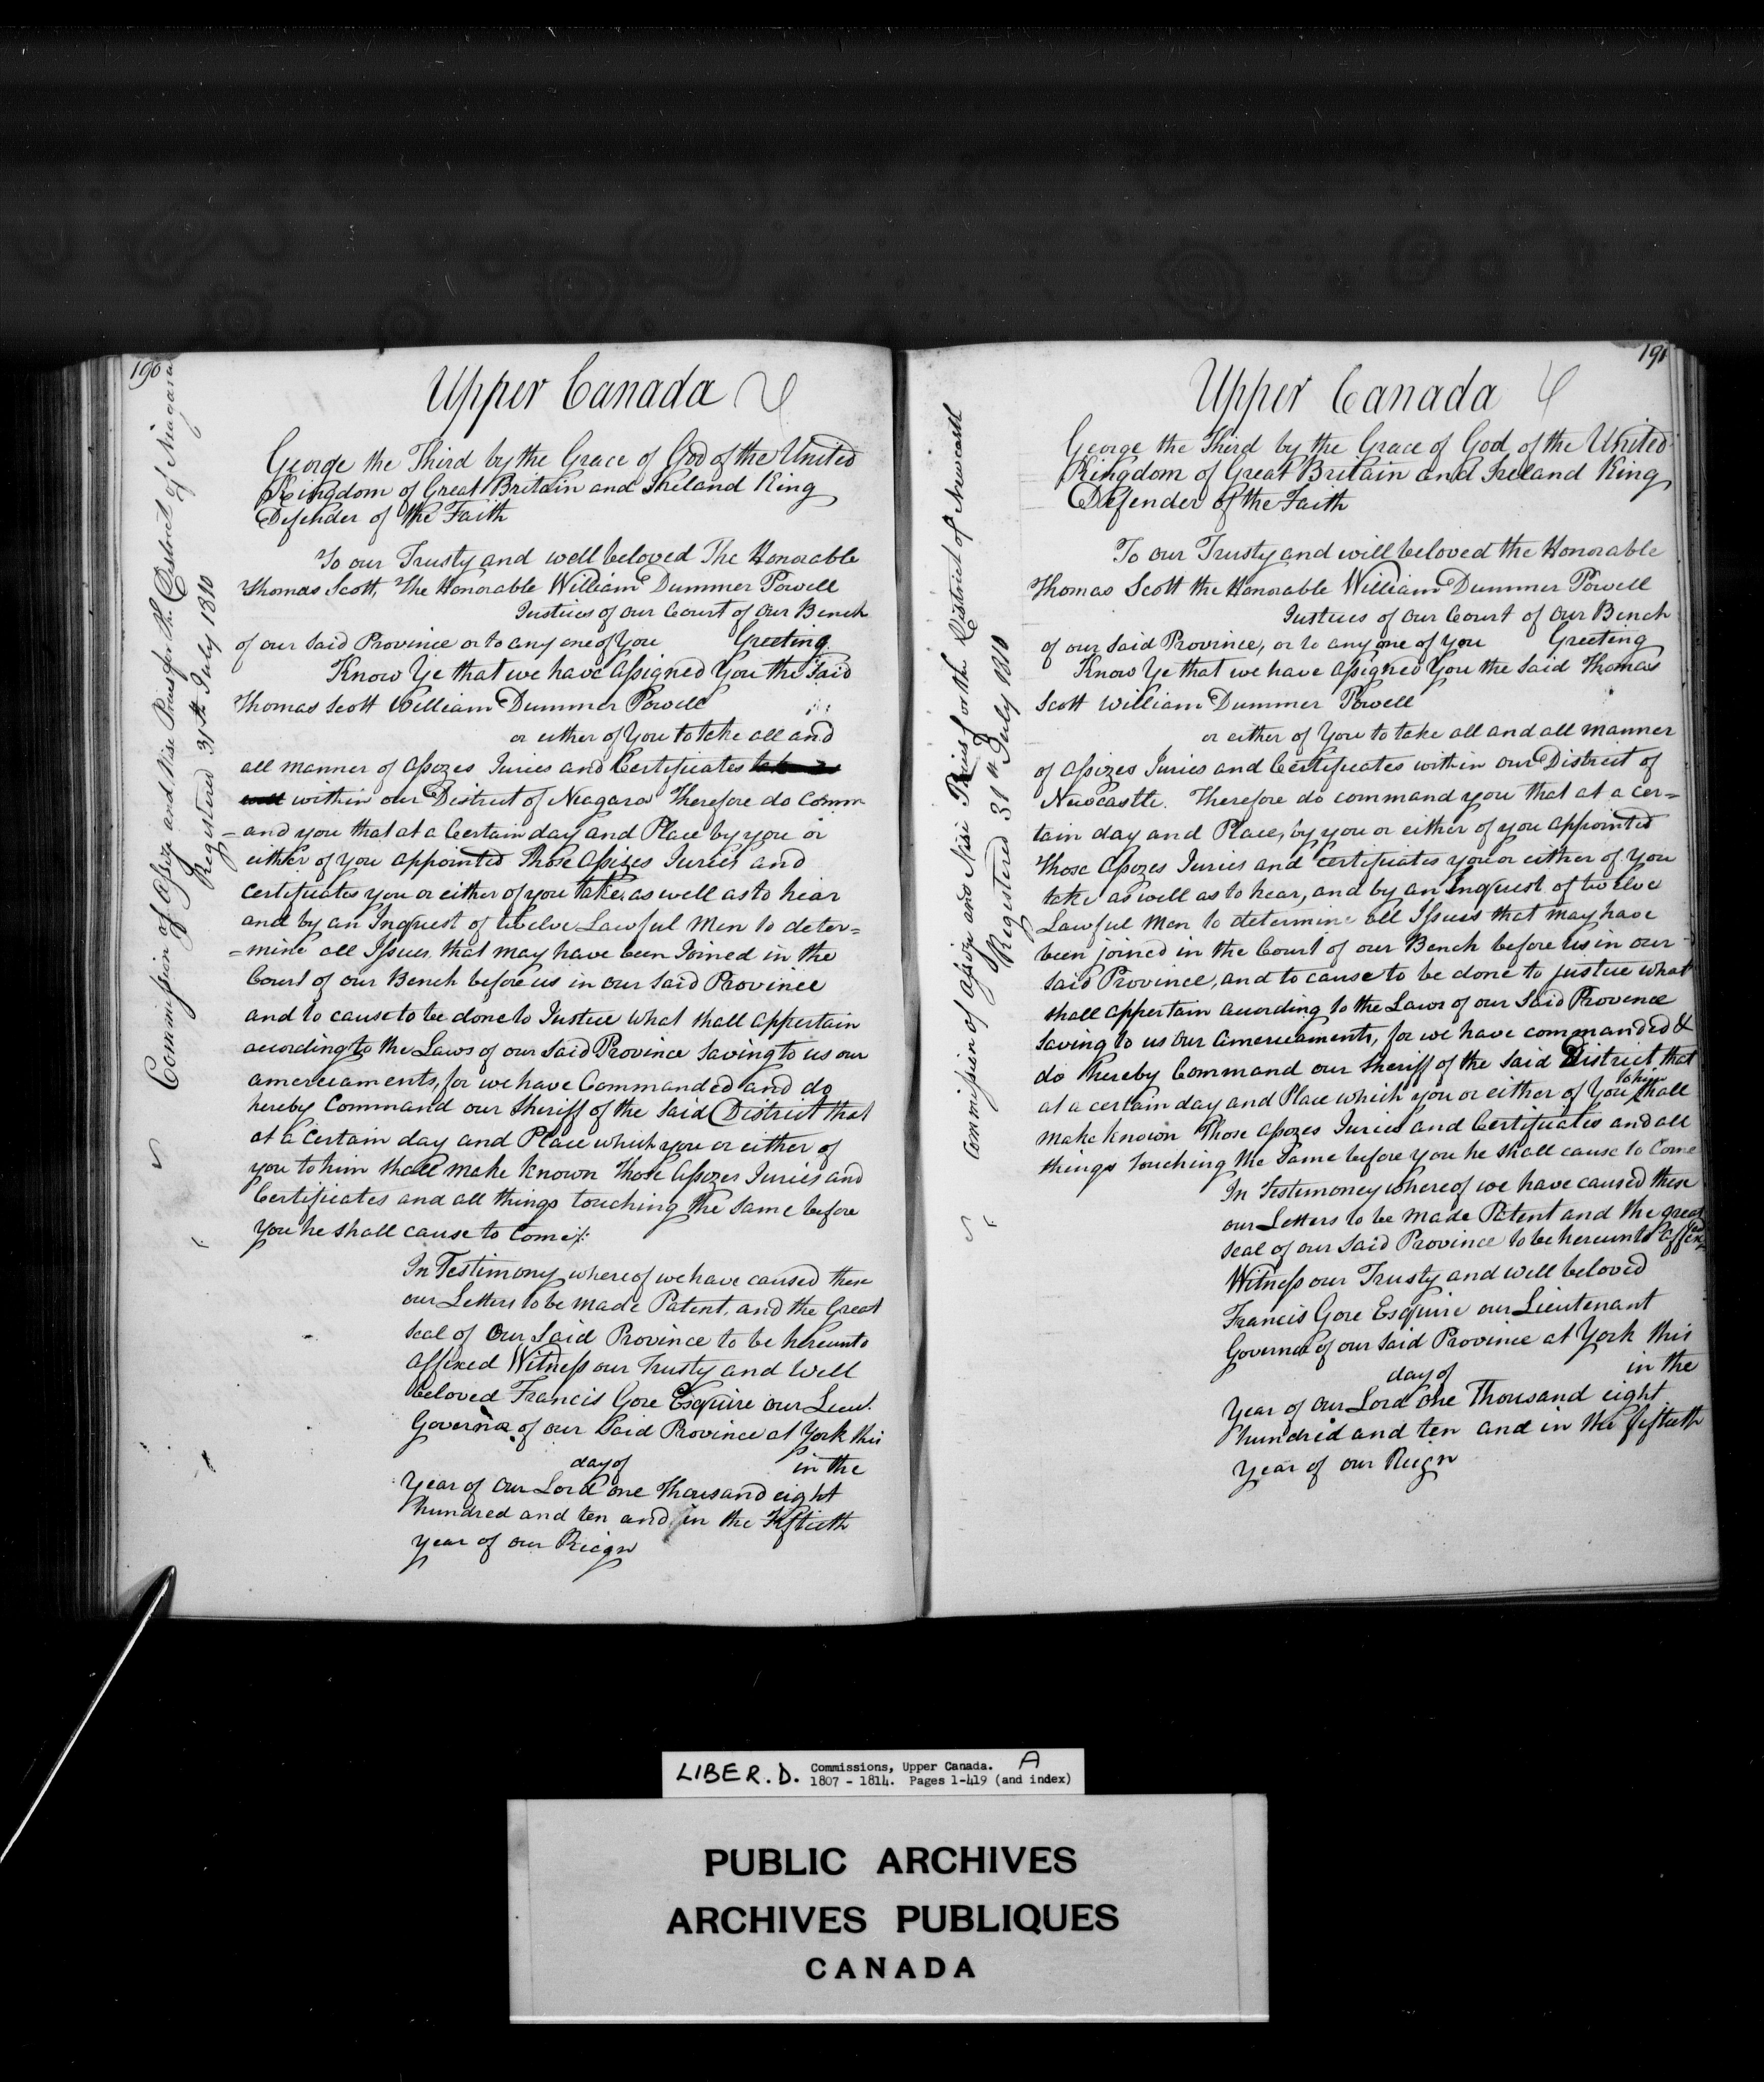 190
Commission of Assize and Nisi Prius for the District of Niagara
Registered 31st July 1810
Upper Canada
George the Third by the Grace of God of the United
Kingdom of Great Britain and Ireland King
Defender of the Faith
To our Trusty and well beloved The Honorable
Thomas Scott, The Honorable William Dummer Powell
Justices of our Court of our Bench
of our said Province or to any one of you Greeting
Know Ye that we have assigned You the said
Thomas Scott William Dummer Powell
or either of You to take all and
all manner of Assizes Juries and Certificates
within our District of Niagara Therefore do Comm
=and you that at a Certain day and Place by you or
either of you appointed Those Assizes Juries and
Certificates you or either of you take, as well as to hear
and by an Inquest of twelve Lawful Men to deter=
=mine all Issues that may have been Joined in the
Court of our Bench before us in our said Province
and to cause to be done to Justice what shall appertain
according to the Laws of our said Province saving to us our
amerciaments, for we have Commanded and do
hereby Command our Sheriff of the said District that
at a Certain day and Place which you or either of
you to him shall make known Those Assizes Juries and
Certificates and all things touching the same before
you he shall cause to Come/:
In Testimony whereof we have caused these
our Letters to be made Patent, and the Great
Seal of Our Said Province to be hereunto
affixed Witness our Trusty and Well
beloved Francis Gore Esquire our Lieut.
Governor of our Said Province at York this
day of in the
Year of Our Lord one Thousand eight
hundred and ten and in the Fiftieth
year of our Reign
191
Commission of Assize and Nisi Prius for the District of Newcastle
Registered 31st July 1810
Upper Canada
George the Third by the Grace of God of the United
Kingdom of Great Britain and Ireland King
Defender of the Faith
To our Trusty and well beloved the Honorable
Thomas Scott the Honorable William Dummer Powell
Justices of our Court of our Bench
of our said Province, or to any one of you Greeting
Know Ye that we have assigned You the said Thomas
Scott William Dummer Powell
or either of You to take all and all manner
of Assizes Juries and Certificates within our District of
Newcastle. Therefore do command you that at a cer=
tain day and Place, by you or either of you appointed
Those Assizes Juries and Certificates you or either of you
take as well as to hear, and by an Inquest of twelve
Lawful Men to determine all Issues that may have
been joined in the Court of our Bench before us in our
said Province, and to cause to be done to justice what
shall appertain according to the Laws of our said Province
saving to us our amerciaments, for we have commanded &
do hereby Command our Sheriff of the said District that
at a certain day and Place which you or either of You to him shall
make known Those Assizes Juries and Certificates and all
things touching the same before you he shall cause to Come
In Testimoney whereof we have caused these
our Letters to be made Patent and the great
seal of our said Province to be hereunto affixed
Witness our Trusty and well beloved
Francis Gore Esquire our Lieutenant
Governor of our said Province at York this
day of in the
Year of our Lord one Thousand eight
hundred and ten and in the fiftieth
Year of our Reign
LIBER. D. Commissions, Upper Canada. A
1807 - 1814. Pages 1-419 (and index)
PUBLIC ARCHIVES
ARCHIVES PUBLIQUES
CANADA